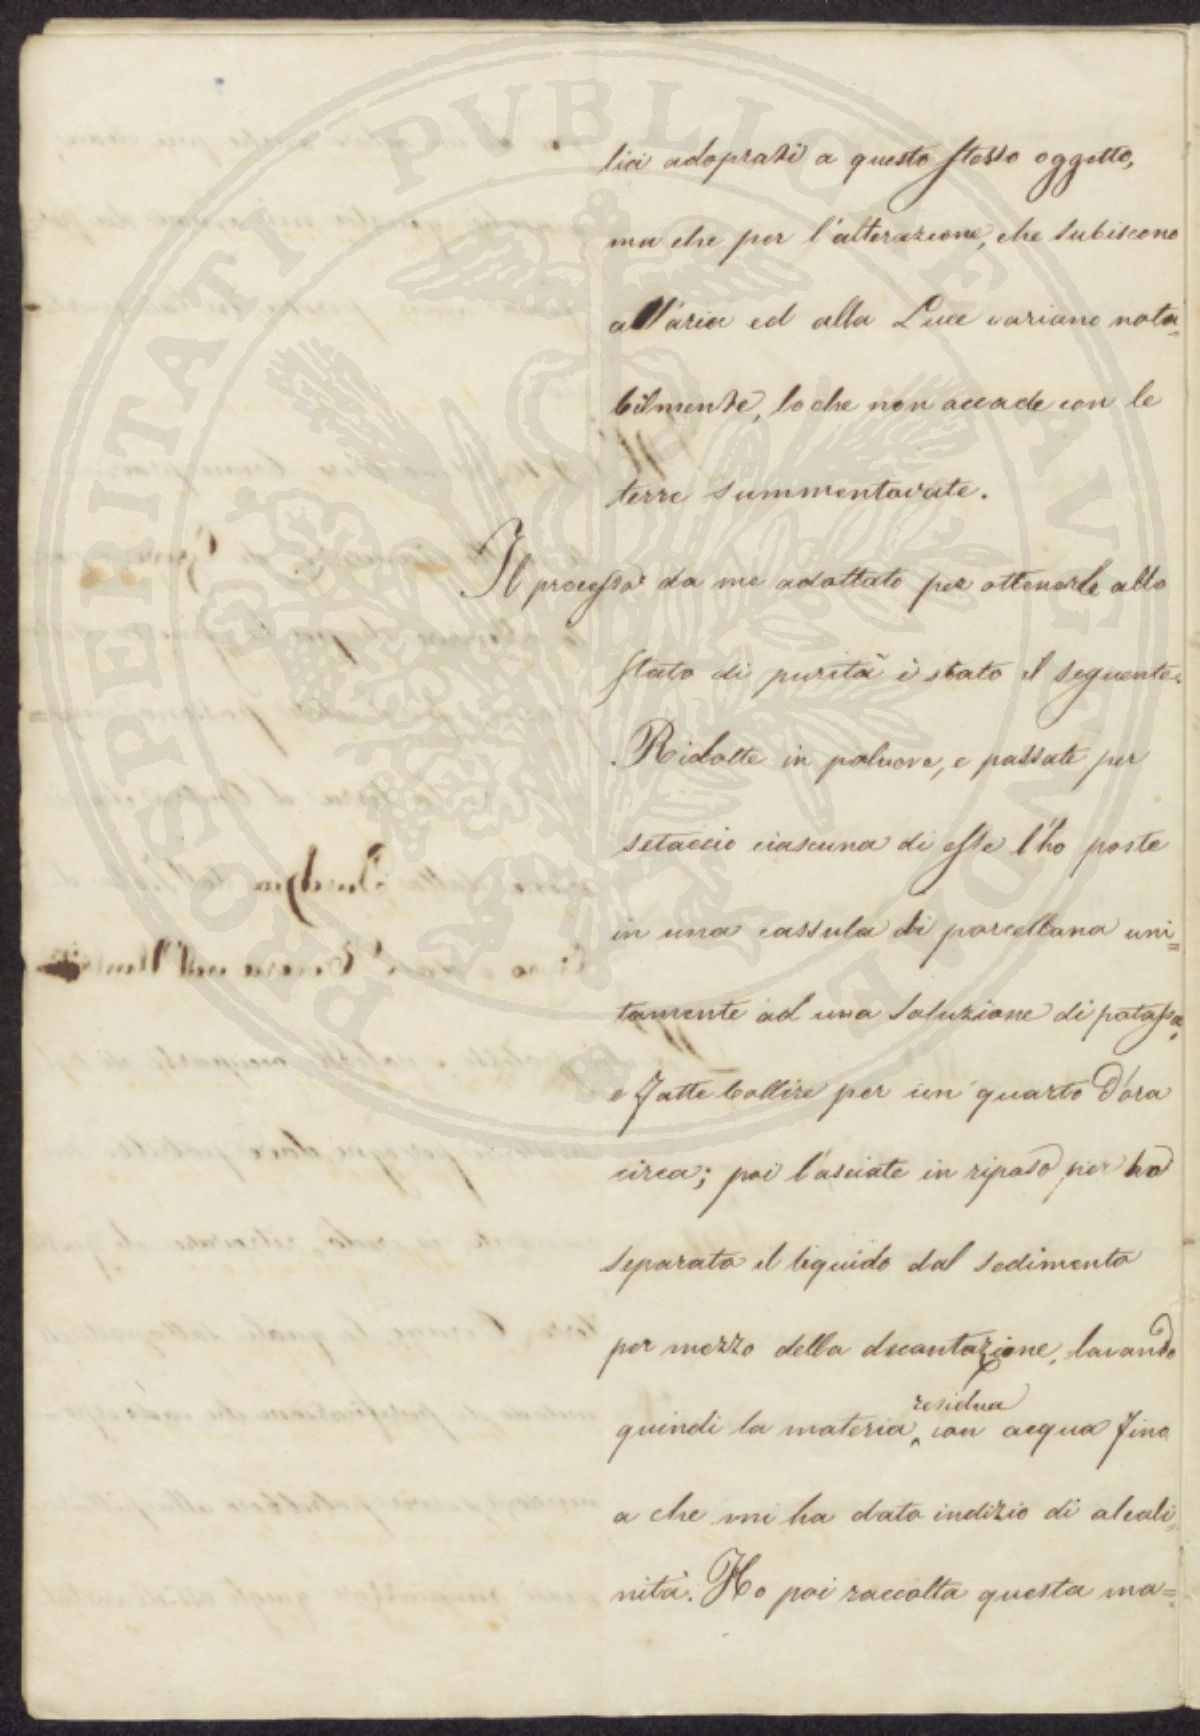 lici adoprati a questo stesso oggetto,
ma che per l'alterazione, che subiscono
all'aria ed alla Luce variano nota=
bilmente, lo che non accade con le
terre summentovate.
Il processo da me adottato per ottenerle allo
stato di purità è stato il seguente.
Ridotte in polvere, e passate per
setaccio ciascuna di esse l'ho poste
in una cassula di porcellana uni=
tamente ad una soluzione di potassa,
e fatte bollire per un quarto d'ora
circa; poi lasciate in riposo, ho
separato il liquido dal sedimento
per mezzo della decantazione, lavando
residua
quindi la materia, con acqua fino
a che mi ha dato indizio di alcali=
nità. Ho poi raccolta questa ma=
PROSPERITATI PUBLICAE AUGENDAE